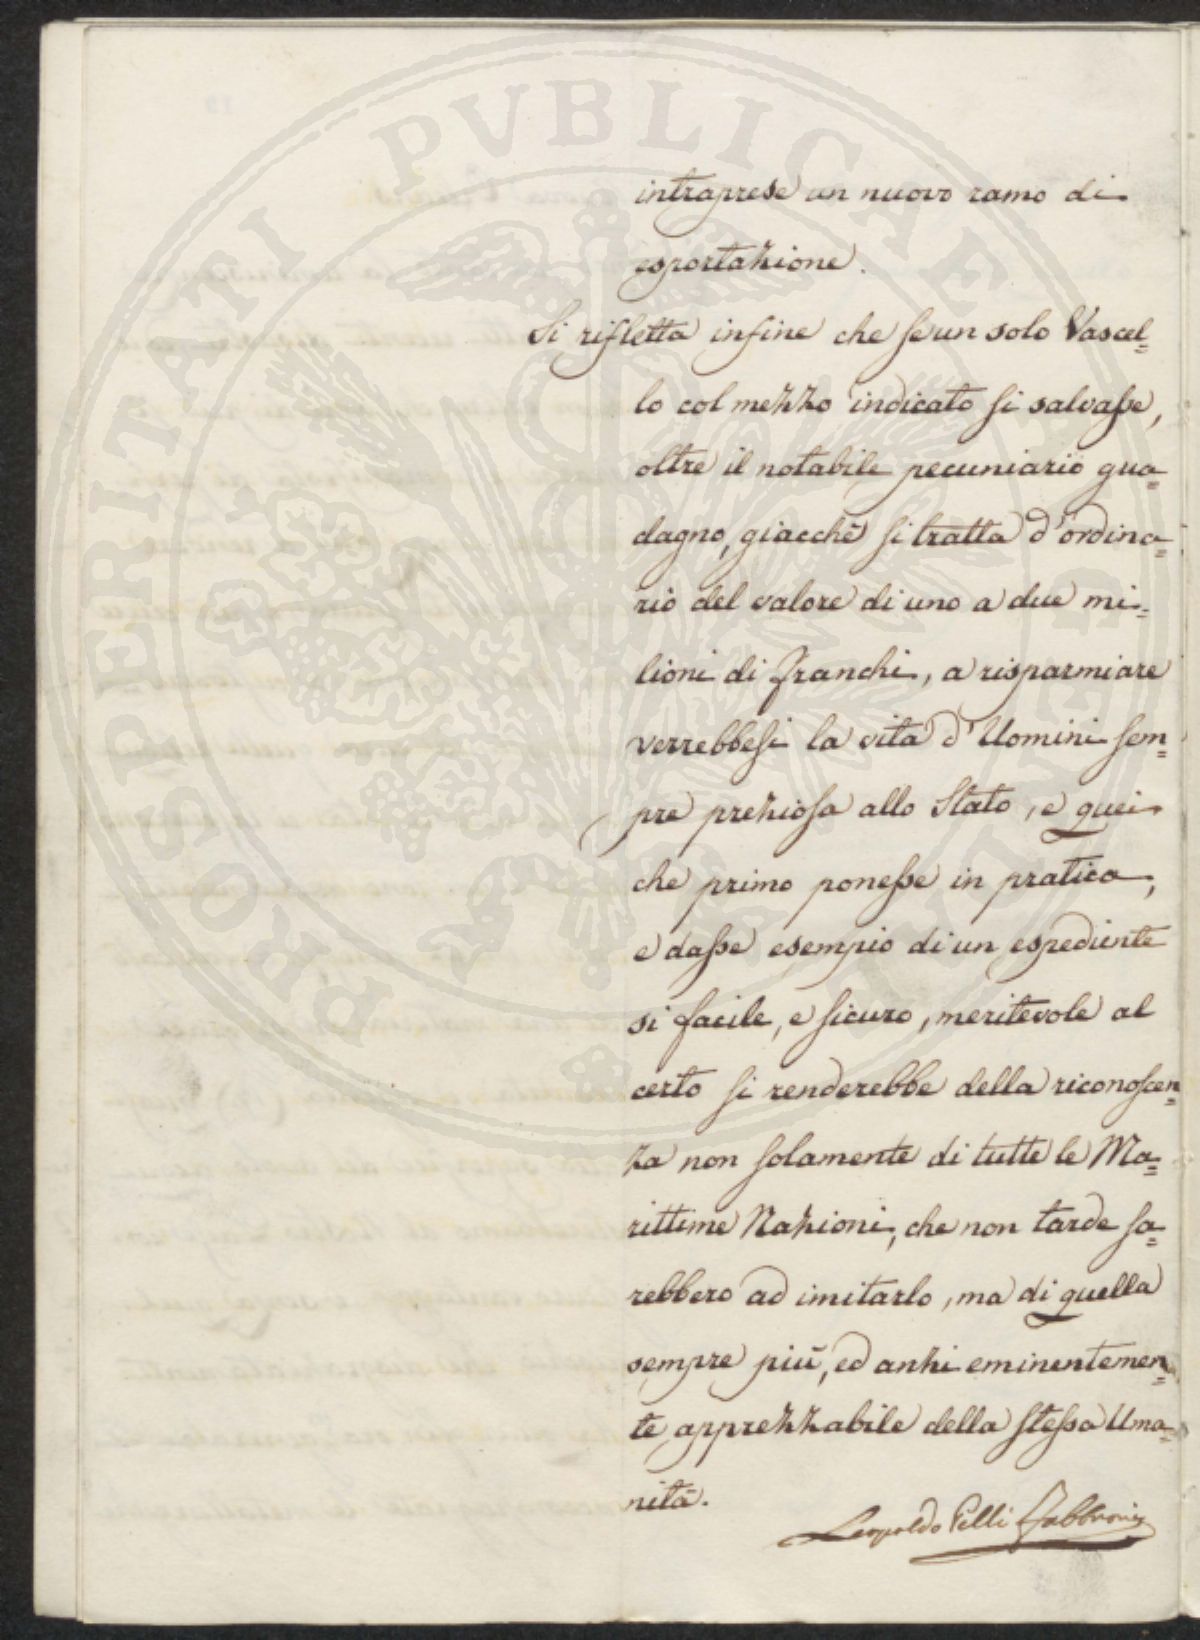 PROSPERITATI PVBLICAE AVGENDAE
intraprese un nuovo ramo di
esportazione.
Si rifletta infine che se un solo Vascel=
lo col mezzo indicato si salvasse,
oltre il notabile pecuniario gua=
dagno, giacchè si tratta d'ordina=
rio del valore di uno a due mi=
lioni di franchi, a risparmiare
verrebbesi la vita d'Uomini sem=
pre preziosa allo Stato, e quei
che primo ponesse in pratica,
e dasse esempio di un espediente
si facile, e sicuro, meritevole al
certo si renderebbe della riconoscen=
za non solamente di tutte le Ma=
rittime Nazioni, che non tarde sa=
rebbero ad imitarlo, ma di quella
sempre più, ed anzi eminentemen=
te apprezzabile della stessa Uma=
nità.
Leopoldo Pelli Fabbroni